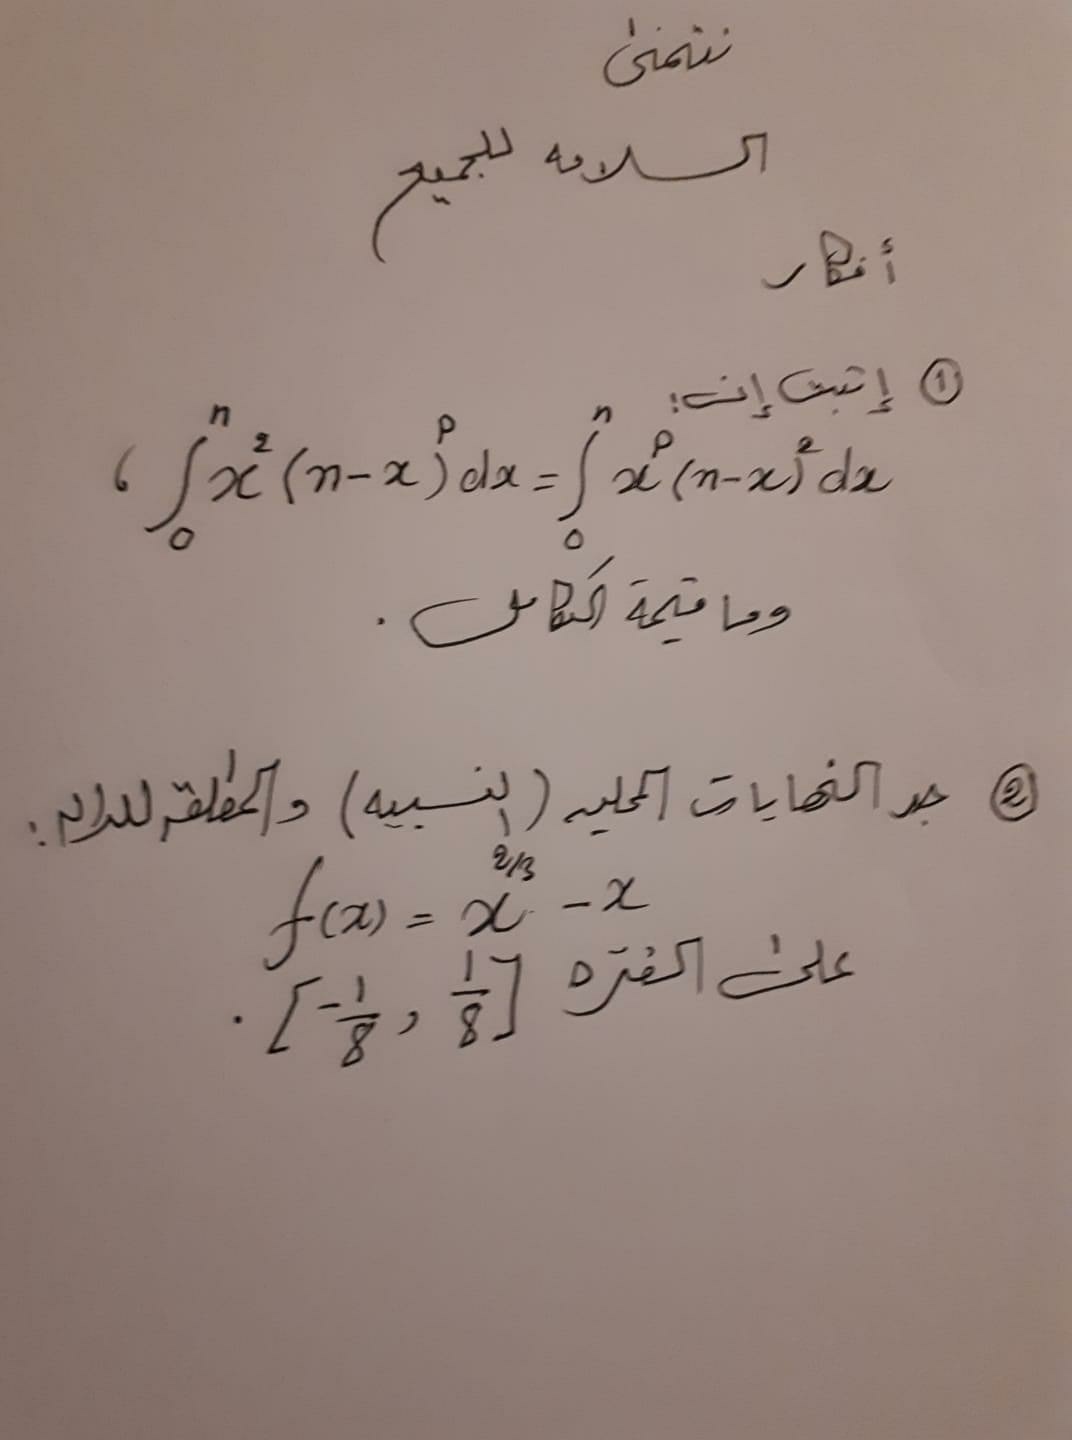 نتمنى
السلامه للجميع
أفكار
① إتبت إن:
∫₀ⁿ x²(n-x)ᵖ dx = ∫₀ⁿ xᵖ(n-x)² dx ،
وما قيمة التكامل .
② جد النهايات المحليه (النسبيه) والمطلقه للداله:
f(x) = x^{2/3} - x
على الفتره [-1/8 , 1/8] .